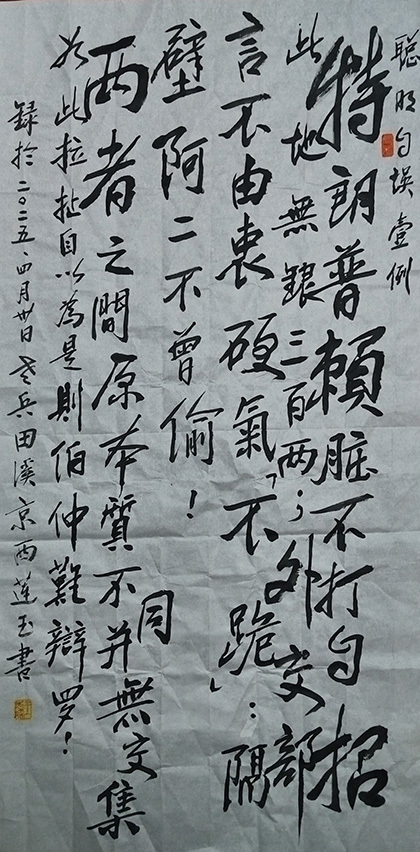 聪明自誤壹例
特朗普賴脏不打自招
此地無銀三百两；外交部
言不由衷硬氣「不跪」：隔
壁阿二不曾偷！
两者之間原本質不同并無交集
如此拉扯自以為是則伯仲難辯罗！
録於二〇二五、四月卅日老兵田溪京西蓮玉書